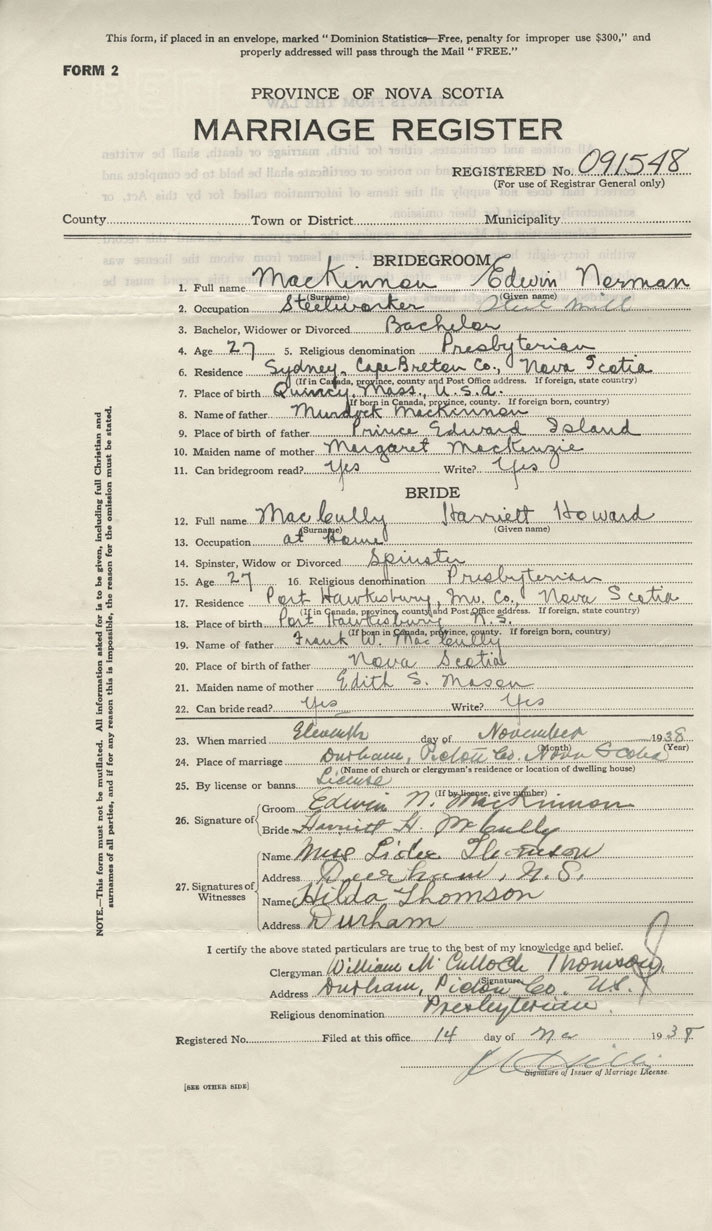 This form, if placed in an envelope, marked "Dominion Statistics—Free, penalty for improper use $300," and
properly addressed will pass through the Mail "FREE."
FORM 2
PROVINCE OF NOVA SCOTIA
MARRIAGE REGISTER
REGISTERED No. 091548
(For use of Registrar General only)
County Town or District Municipality
BRIDEGROOM
1. Full name MacKinnon Edwin Norman
(Surname) (Given name)
2. Occupation Steelworker Steel Mill
3. Bachelor, Widower or Divorced Bachelor
4. Age 27 5. Religious denomination Presbyterian
6. Residence Sydney, Cape Breton Co., Nova Scotia
(If in Canada, province, county and Post Office address. If foreign, state country)
7. Place of birth Quincy, Mass., U.S.a.
(If born in Canada, province, county. If foreign born, country)
8. Name of father Murdock MacKinnon
9. Place of birth of father Prince Edward Island
10. Maiden name of mother Margaret MacKenzie
11. Can bridegroom read? Yes Write? Yes
BRIDE
12. Full name MacCully Harriett Howard
(Surname) (Given name)
13. Occupation at Home
14. Spinster, Widow or Divorced Spinster
15. Age 27 16. Religious denomination Presbyterian
17. Residence Port Hawksbury, Inv. Co. Nova Scotia
(If in Canada, province, county and Post Office address. If foreign, state country)
18. Place of birth Port Hawksbury N.S.
(If born in Canada, province, county. If foreign born, country)
19. Name of father Frank W. MacCully
20. Place of birth of father Nova Scotia
21. Maiden name of mother Edith S. Mason
22. Can bride read? Yes Write? Yes
23. When married Eleventh day of November 1938
(Month) (Year)
24. Place of marriage Durham, Pictou Co. Nova Scotia
(Name of church or clergyman's residence or location of dwelling house)
25. By license or banns License
(If by license, give number)
26. Signature of Groom Edwin N. MacKinnon
Bride Harriett H. McCully
27. Signatures of Witnesses
Name Mrs Thomson
Address Durham, N.S.
Name Hilda Thomson
Address Durham
I certify the above stated particulars are true to the best of my knowledge and belief.
Clergyman William McCulloch Thomson
(Signature)
Address Durham, Pictou Co. N.S.
Religious denomination Presbyterian.
Registered No. Filed at this office 14 day of 1938
Signature of Issuer of Marriage License
[SEE OTHER SIDE]
NOTE.—This form must not be mutilated. All information asked for is to be given, including full Christian and
surnames of all parties, and if for any reason this is impossible, the reason for the omission must be stated.